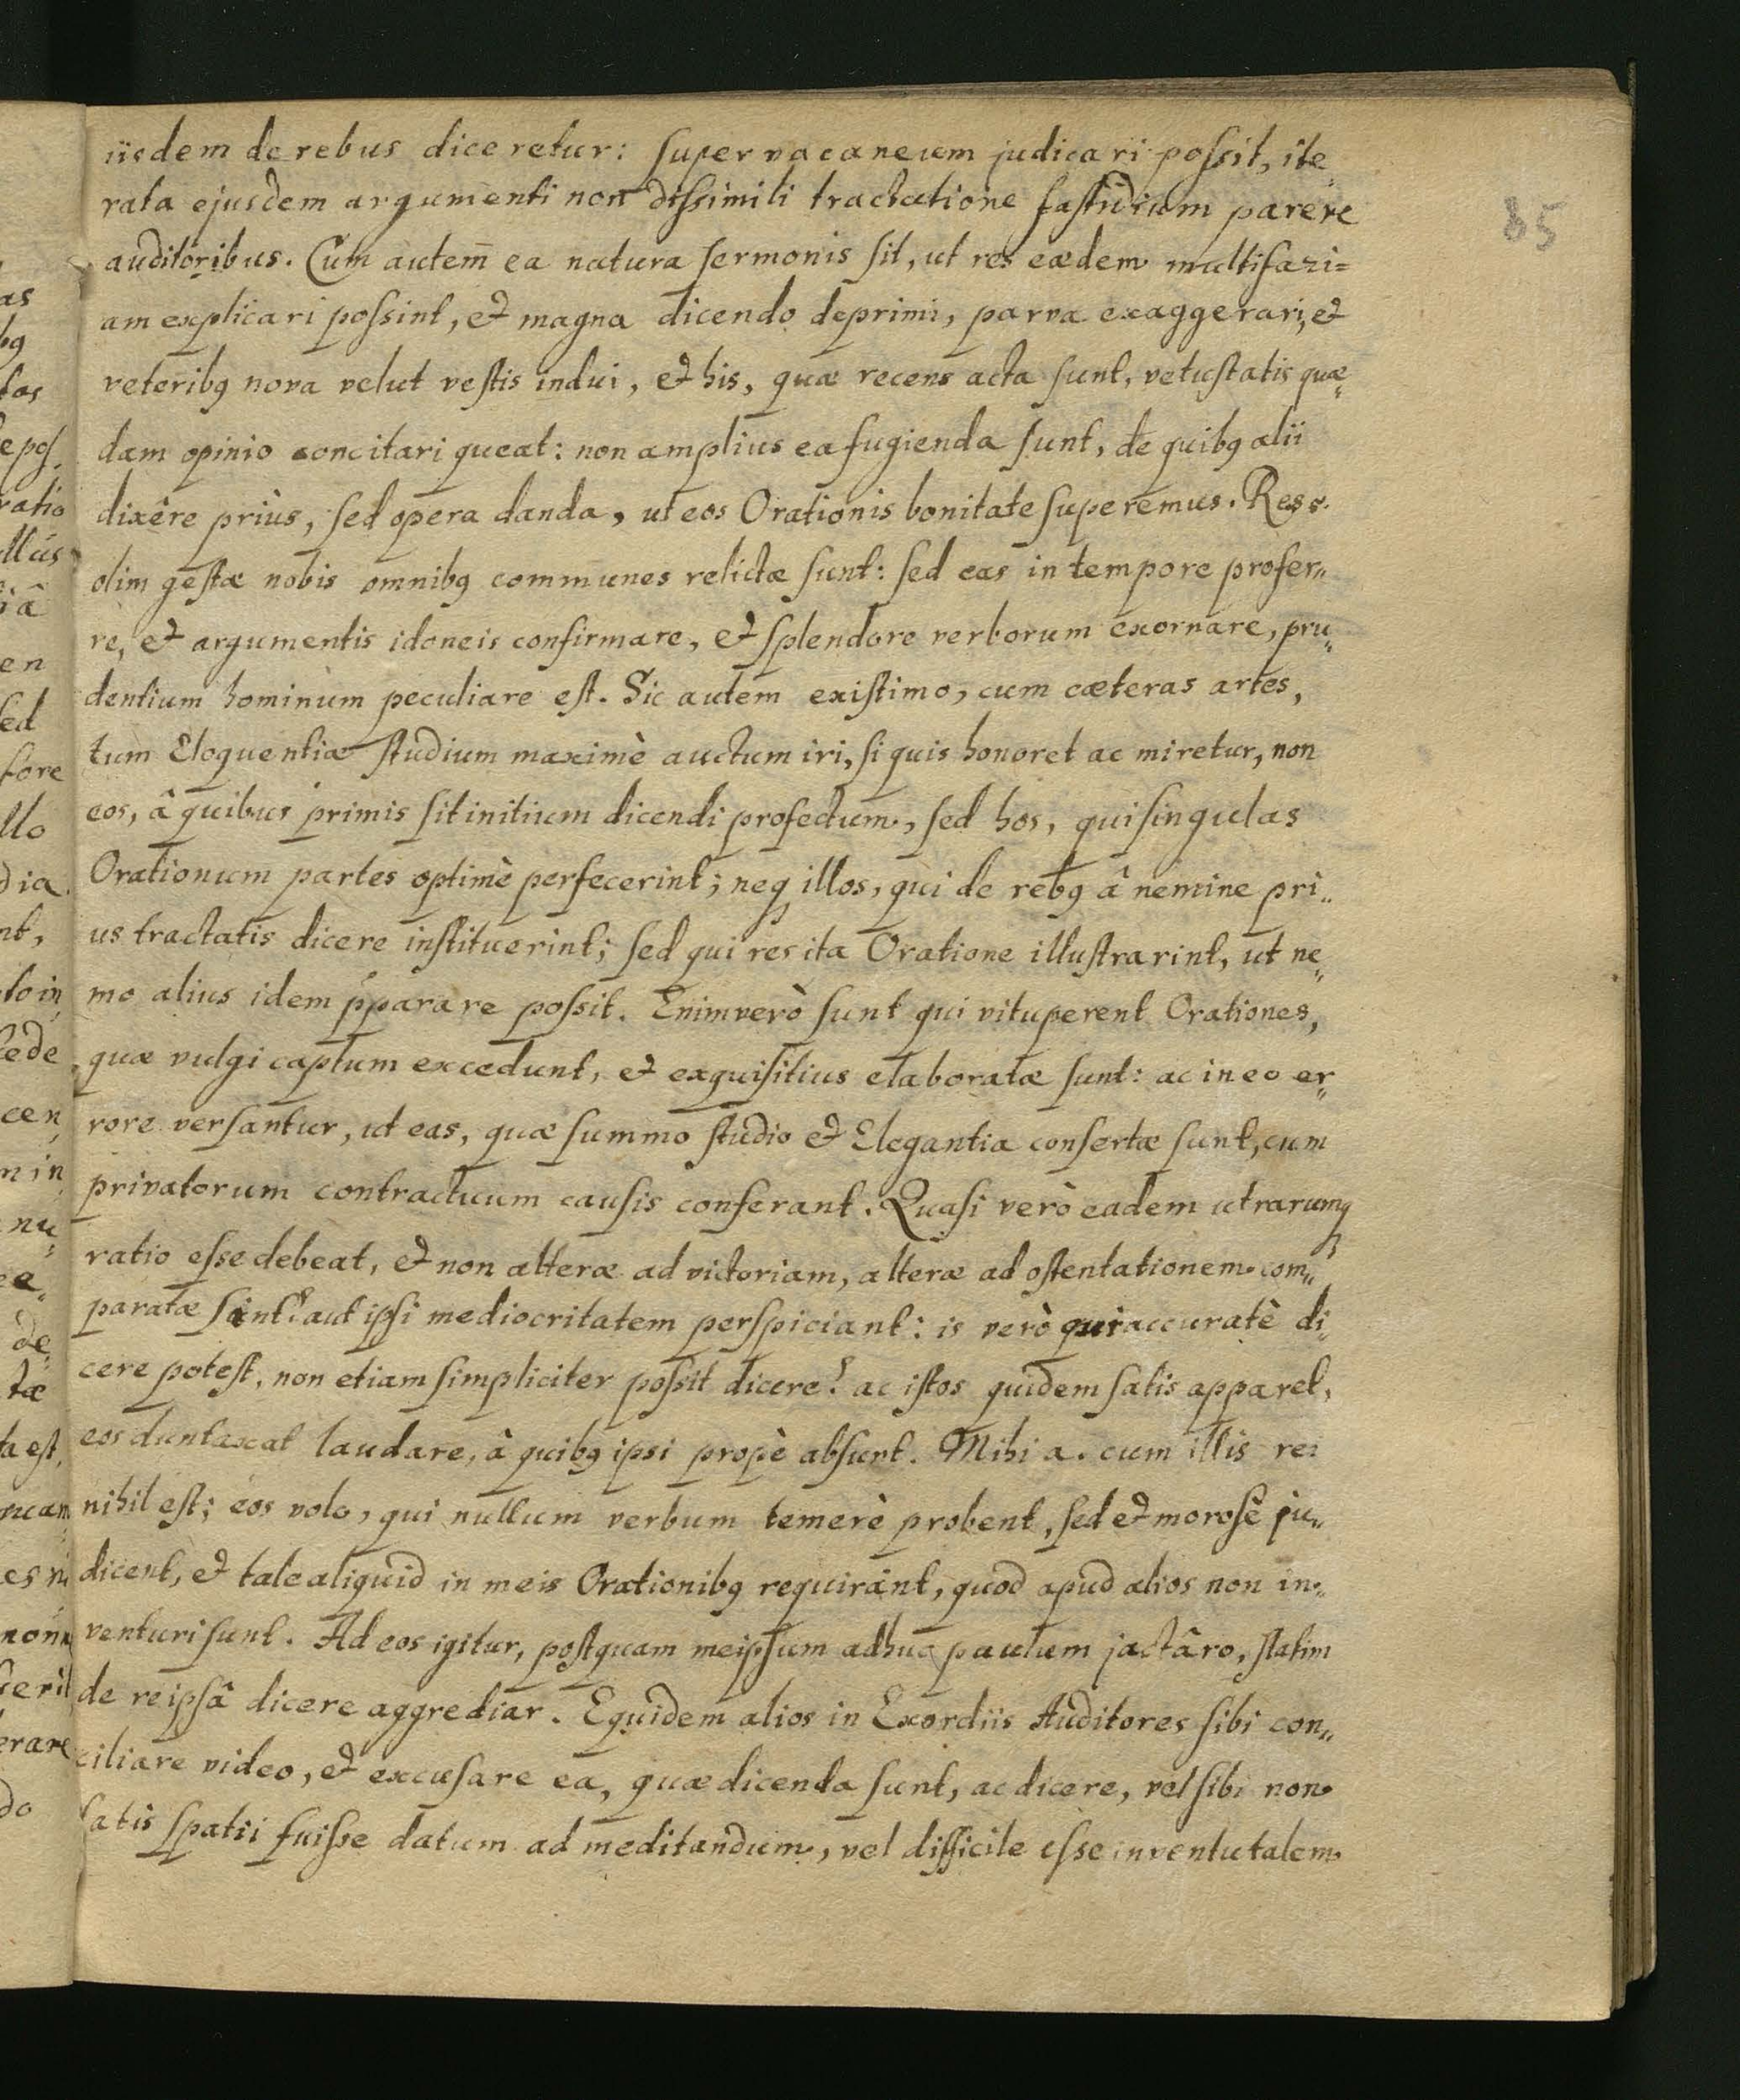 iisdem de rebus diceretur: supervacaneum judicari possit, ite„
rata ejusdem argumenti non dissimili tractatione fastidium parere
auditoribus. Cum autem ea natura sermonis sit, ut res eædem multifari=
am explicari possint, et magna dicendo deprimi, parva exaggerari, et
veteribꝯ nova velut vestis indui, et his, quæ recens acta sunt, vetustatis quæ„
dam opinio concitari queat: non amplius ea fugienda sunt, de quibꝯ alii
dixêre priùs, sed opera danda, ut eos Orationis bonitate superemus. Res e.
olim gestæ nobis omnibꝯ communes relictæ sunt: sed eas in tempore profer„
re, et argumentis idoneis confirmare, et splendore verborum exornare, pru„
dentium hominum peculiare est. Sic autem existimo, cum cæteras artes,
tum Eloquentiæ studium maximè auctum iri, si quis honoret ac miretur, non
eos, â quibus primis sit initium dicendi profectum, sed hos, qui singulas
Orationum partes optimè perfecerint; neqꝫ illos, qui de rebꝯ â nemine pri„
us tractatis dicere instituerint; sed qui res ita Oratione illustrarint, ut ne„
mo alius idem p̱parare possit. Enimverò sunt qui vituperent Orationes,
quæ vulgi captum excedunt, et exquisitius elaboratæ sunt: ac in eo er„
rore versantur, ut eas, quæ summo studio et Elegantia consertæ sunt, cum
privatorum contractuum causis conferant. Quasi verò eadem utrarumqꝫ
ratio esse debeat, et non alteræ ad victoriam, alteræ ad ostentationem com„
paratæ sint? aut ipsi mediocritatem perspiciant: is verò qui accuratè di„
cere potest, non etiam simpliciter possit dicere? ac istos quidem satis apparet,
eos duntaxat laudare, à quibꝯ ipsi propè absunt. Mihi a. cum illis rei
nihil est; eos volo, qui nullum verbum temerè probent, sed et morosè ju„
dicent, et tale aliquid in meis Orationibꝯ requirant, quod apud alios non in„
venturi sunt. Ad eos igitur, postquam meipsum adhuc paulum jactâro, statim
de re ipsâ dicere aggrediar. Equidem alios in Exordiis Auditores sibi con„
ciliare video, et excusare ea, quæ dicenda sunt, ac dicere, vel sibi non
satis spatii fuisse datum ad meditandum, vel difficile esse inventu talem
85